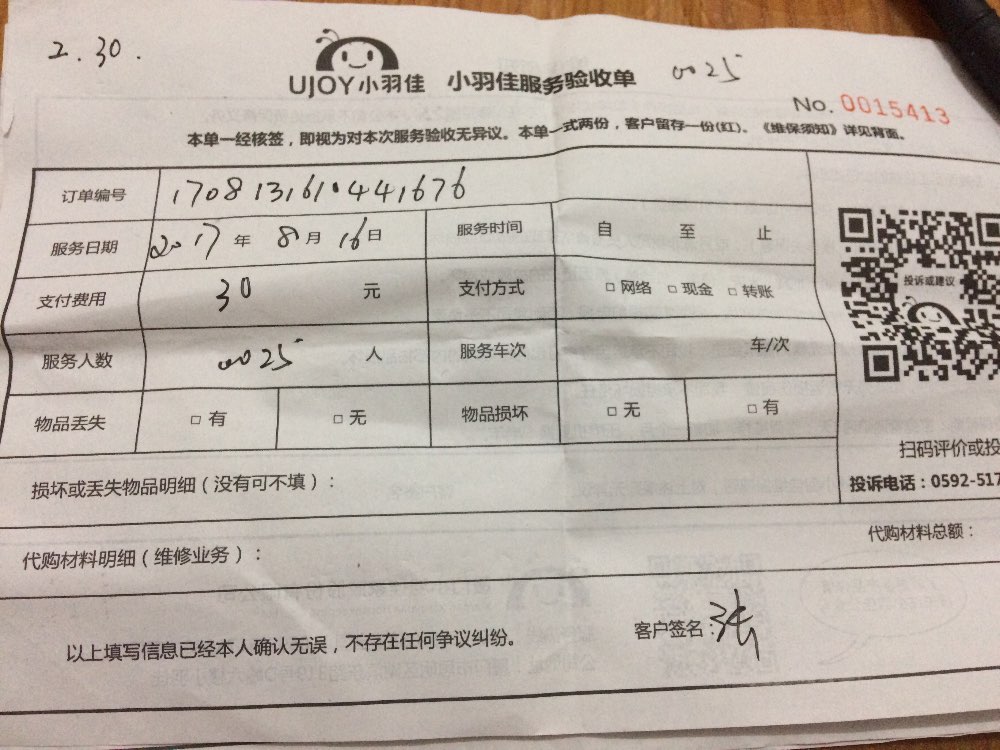 2.30.
UJOY小羽佳 小羽佳服务验收单 0025
No. 0015413
本单一经核签，即视为对本次服务验收无异议。本单一式两份，客户留存一份(红)。《维保须知》详见背面。
订单编号 1708131610441676
服务日期 2017 年 8 月 16 日 服务时间 自 至 止
支付费用 30 元 支付方式 □ 网络 □ 现金 □ 转账
服务人数 0025 人 服务车次 车/次
物品丢失 □ 有 □ 无 物品损坏 □ 无 □ 有
投诉或建议
扫码评价或投
损坏或丢失物品明细（没有可不填）：
投诉电话：0592-517
代购材料明细（维修业务）： 代购材料总额：
以上填写信息已经本人确认无误，不存在任何争议纠纷。 客户签名：张